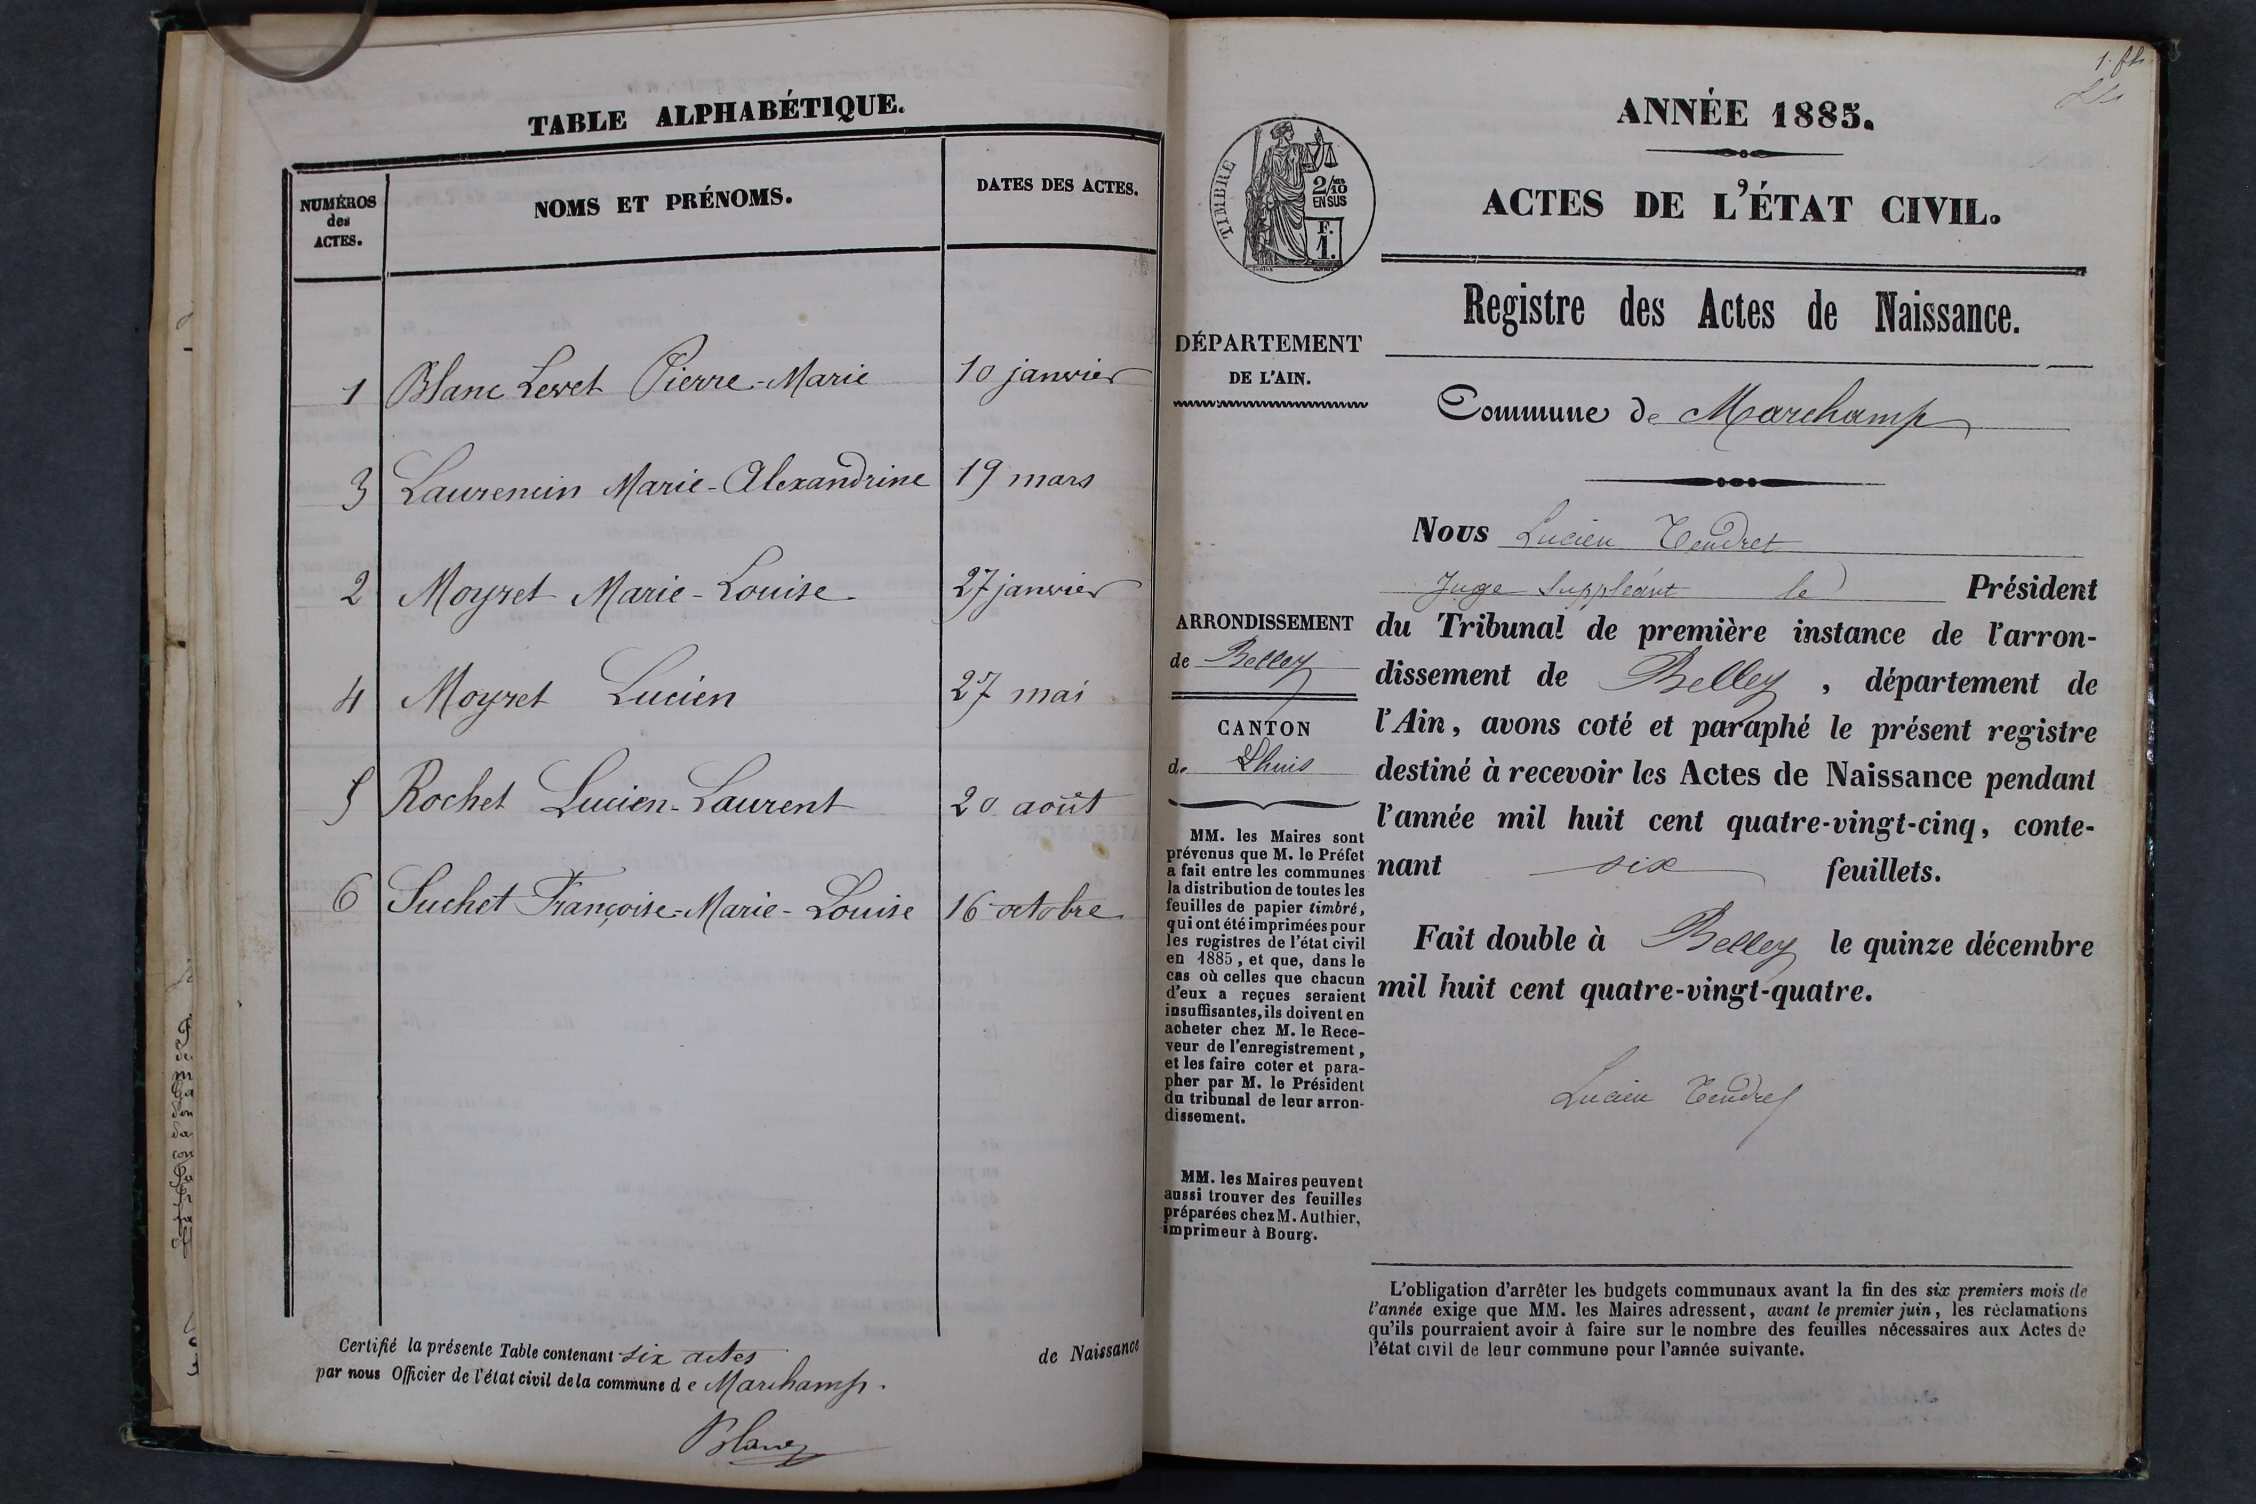 TABLE ALPHABÉTIQUE.
NUMÉROS
des
ACTES.
NOMS ET PRÉNOMS.
DATES DES ACTES.
1 Blanc Levet Pierre-Marie 10 janvier
3 Laurencin Marie-Alexandrine 19 mars
2 Moyret Marie-Louise 27 janvier
4 Moyret Lucien 27 mai
5 Rochet Lucien-Laurent 20 août
6 Suchet Françoise-Marie-Louise 16 octobre
Certifié la présente Table contenant six actes de Naissance
par nous Officier de l'état civil de la commune de Marchamp.
Blanc
ANNÉE 1885.
ACTES DE L'ÉTAT CIVIL.
TIMBRE
2/10
EN SUS
F.
1.
Registre des Actes de Naissance.
DÉPARTEMENT
DE L'AIN.
Commune de Marchamp
Nous Lucien Tendret
Juge Suppléant le Président
du Tribunal de première instance de l'arron-
dissement de Belley, département de
l'Ain, avons coté et paraphé le présent registre
destiné à recevoir les Actes de Naissance pendant
l'année mil huit cent quatre-vingt-cinq, conte-
nant six feuillets.
Fait double à Belley le quinze décembre
mil huit cent quatre-vingt-quatre.
Lucien Tendret
ARRONDISSEMENT
de Belley
CANTON
de Lhuis
MM. les Maires sont
prévenus que M. le Préfet
a fait entre les communes
la distribution de toutes les
feuilles de papier timbré,
qui ont été imprimées pour
les registres de l'état civil
en 1885, et que, dans le
cas où celles que chacun
d'eux a reçues seraient
insuffisantes, ils doivent en
acheter chez M. le Rece-
veur de l'enregistrement,
et les faire coter et para-
pher par M. le Président
du tribunal de leur arron-
dissement.
MM. les Maires peuvent
aussi trouver des feuilles
préparées chez M. Authier,
imprimeur à Bourg.
L'obligation d'arrêter les budgets communaux avant la fin des six premiers mois de
l'année exige que MM. les Maires adressent, avant le premier juin, les réclamations
qu'ils pourraient avoir à faire sur le nombre des feuilles nécessaires aux Actes de
l'état civil de leur commune pour l'année suivante.